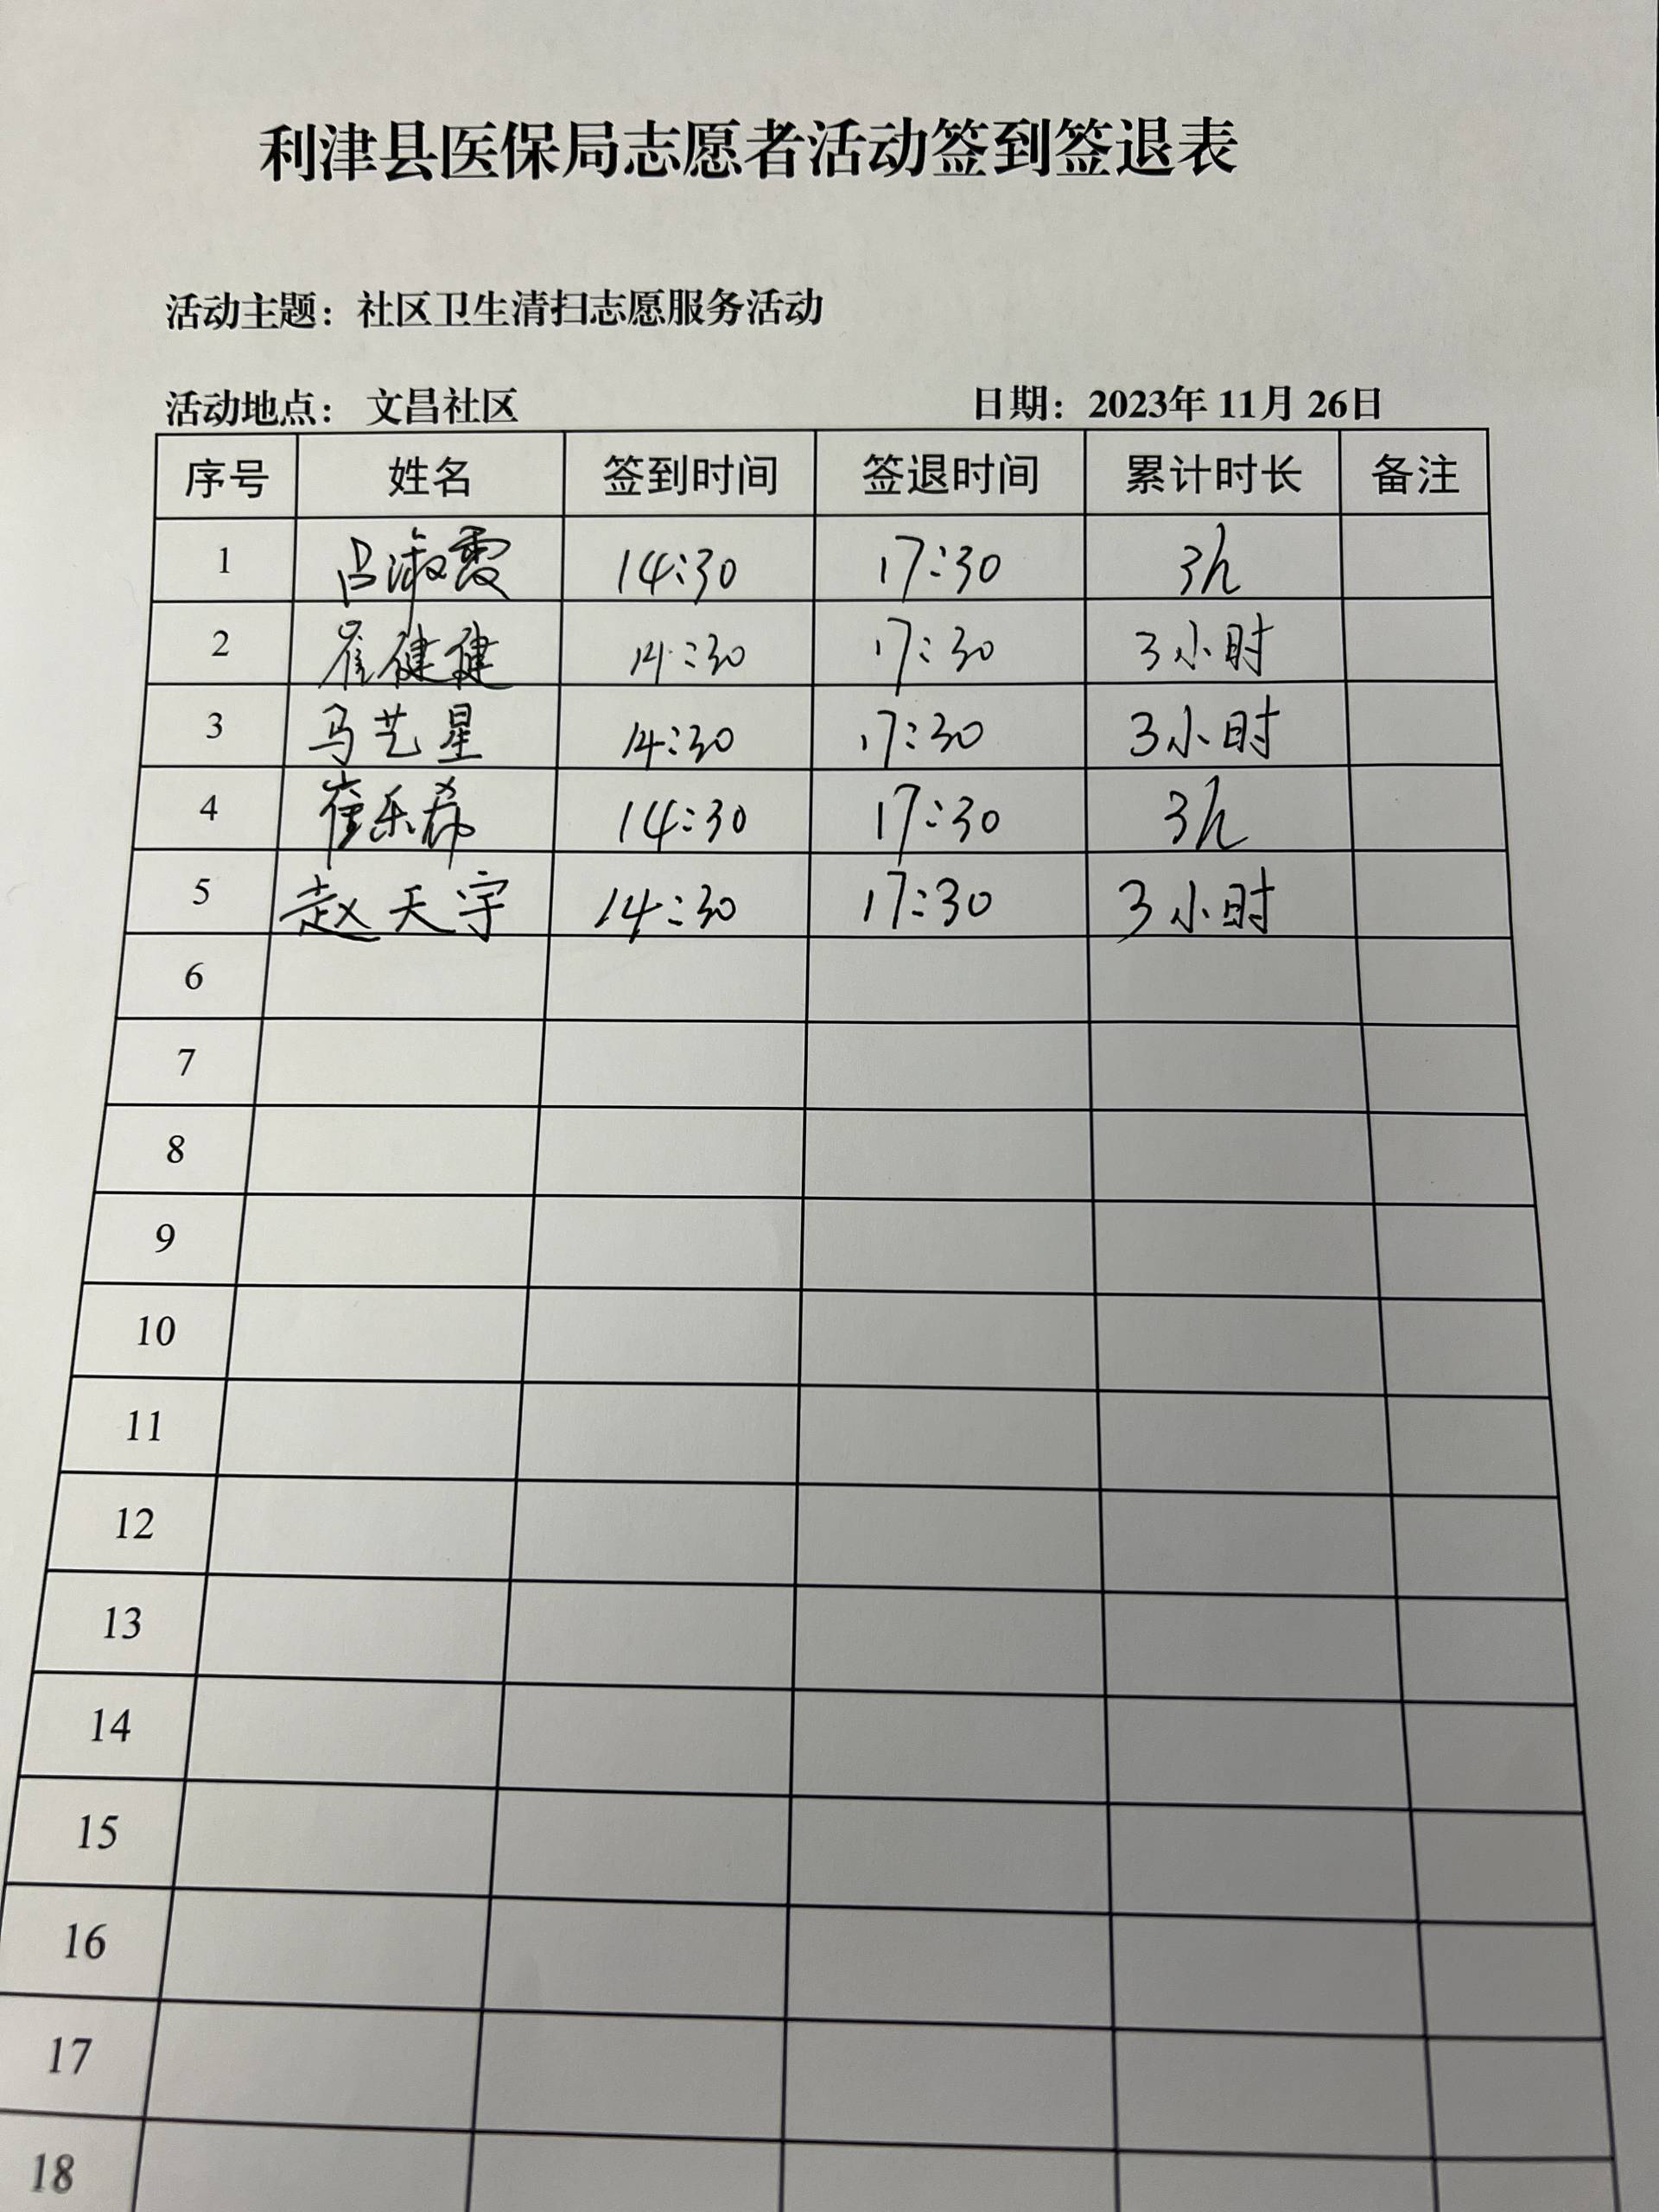 利津县医保局志愿者活动签到签退表
活动主题：社区卫生清扫志愿服务活动
活动地点： 文昌社区 日期：2023年 11月 26日
序号 姓名 签到时间 签退时间 累计时长 备注
1 吕淑霞 14:30 17:30 3h
2 崔健健 14:30 17:30 3小时
3 马艺星 14:30 17:30 3小时
4 崔乐希 14:30 17:30 3h
5 赵天宇 14:30 17:30 3小时
6
7
8
9
10
11
12
13
14
15
16
17
18